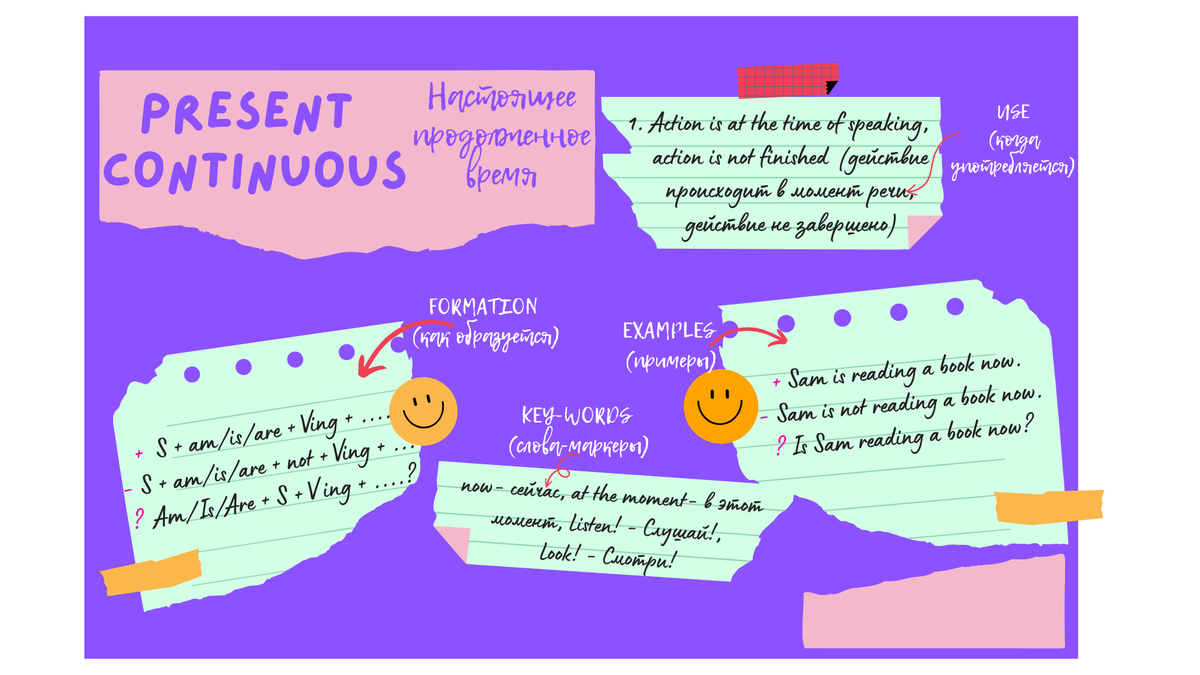 PRESENT
CONTINUOUS
Настоящее
продолженное
время
1. Action is at the time of speaking,
action is not finished (действие
происходит в момент речи,
действие не завершено)
USE
(когда
употребляется)
FORMATION
(как образуется)
+ S + am/is/are + Ving + ....
- S + am/is/are + not + Ving + ...
? Am/Is/Are + S + Ving + ....?
EXAMPLES
(примеры)
+ Sam is reading a book now.
- Sam is not reading a book now.
? Is Sam reading a book now?
KEY-WORDS
(слова-маркеры)
now - сейчас, at the moment - в этот
момент, Listen! - Слушай!,
Look! - Смотри!